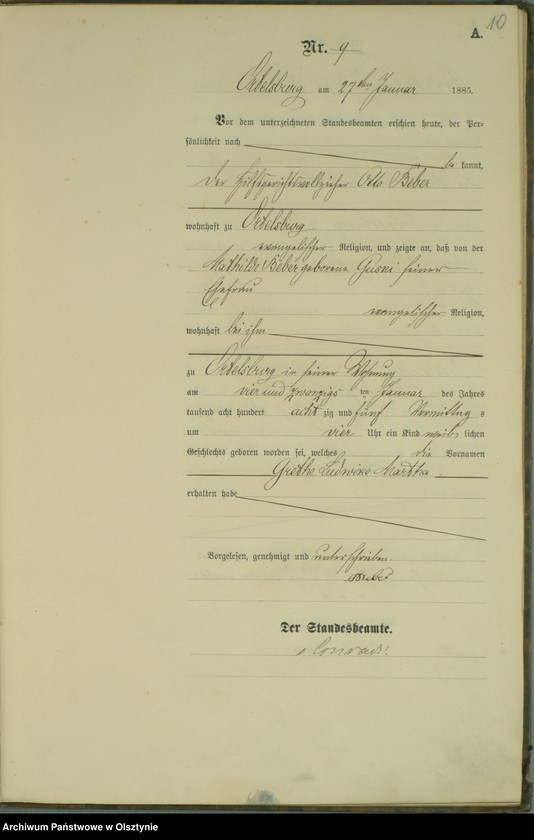 10
A.
Nr. 9
Ortelsburg am 27ten Januar 1885.
Vor dem unterzeichneten Standesbeamten erschien heute, der Per=
sönlichkeit nach
be kannt,
der Hilfsgerichtsvollzieher Otto Beber
wohnhaft zu Ortelsburg
evangelischer Religion, und zeigte an, daß von der
Mathilde Beber geborene Guski seiner
Ehefrau
evangelischer Religion,
wohnhaft bei ihm
zu Ortelsburg in seiner Wohnung
am vier und zwanzigs ten Januar des Jahres
tausend acht hundert acht zig und fünf Vormittag s
um vier Uhr ein Kind weib lichen
Geschlechts geboren worden sei, welches die Vornamen
Grethe Ludwike Martha
erhalten habe
Vorgelesen, genehmigt und unterschrieben.
Beber
Der Standesbeamte.
Conradi
Archiwum Państwowe w Olsztynie